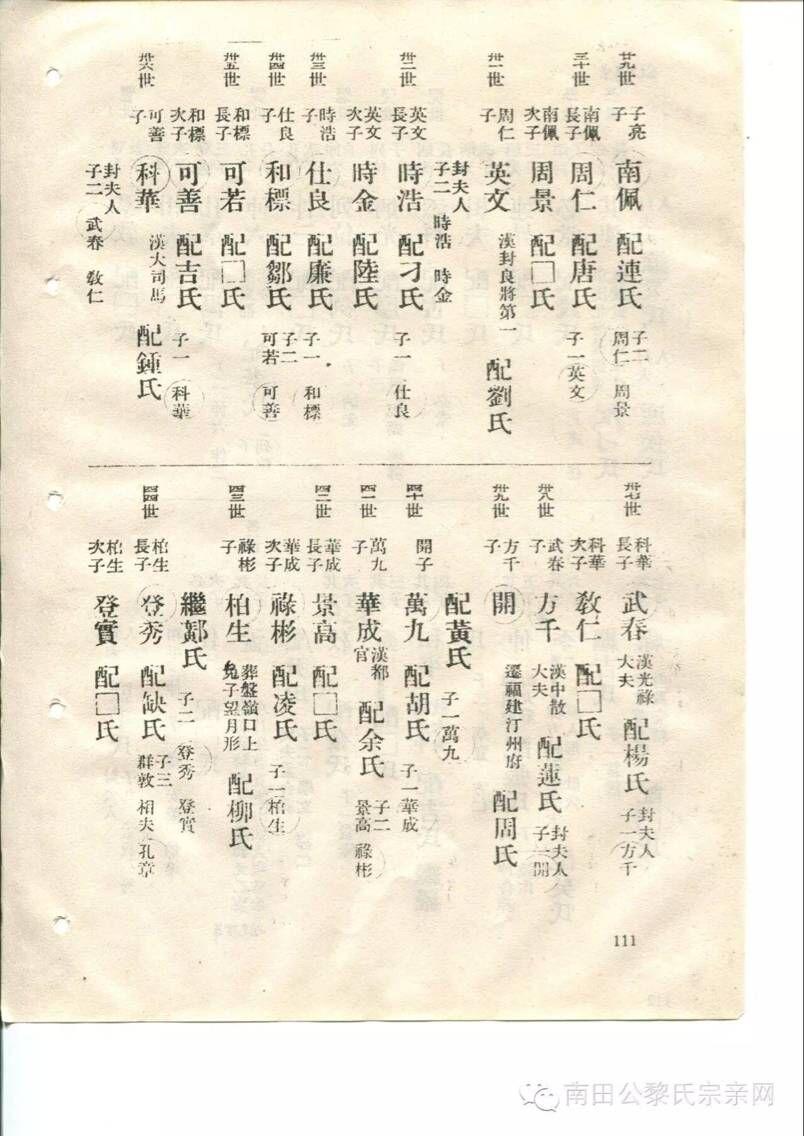 廿九世 子亮子 南佩 配連氏 子二 周仁 周景
三十世 南佩長子 周仁 配唐氏 子一英文
南佩次子 周景 配□氏
卅一世 周仁子 英文 漢封良將第一 配劉氏
封夫人 子二 時浩 時金
卅二世 英文長子 時浩 配刁氏 子一 仕良
英文次子 時金 配陸氏
卅三世 時浩子 仕良 配廉氏 子一 和標
卅四世 仕良子 和標 配鄒氏 子二 可若 可善
卅五世 和標長子 可若 配□氏
和標次子 可善 配吉氏 子一 科華
卅六世 可善子 科華 漢大司馬 配鍾氏
封夫人 子二 武春 敎仁
卅七世 科華長子 武春 漢光祿大夫 配楊氏 封夫人 子一方千
科華次子 敎仁 配□氏
卅八世 武春子 方千 漢中散大夫 配蓮氏 封夫人 子一開
卅九世 方千子 開 遷福建汀州府 配周氏
配黃氏 子一萬九
四十世 開子 萬九 配胡氏 子一華成
四一世 萬九子 華成 漢都官 配余氏 子二 景高 祿彬
四二世 華成長子 景高 配□氏
華成次子 祿彬 配凌氏 子一柏生
四三世 祿彬子 柏生 葬盤嶺口上兔子望月形 配柳氏
繼鄭氏 子二 登秀 登實
四四世 柏生長子 登秀 配缺氏 子三 群敦 相夫 孔章
柏生次子 登實 配□氏
111
南田公黎氏宗亲网